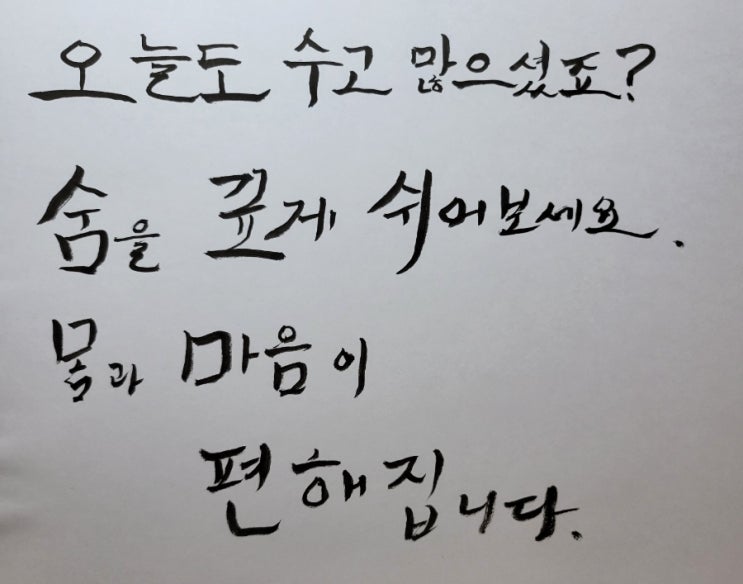 오늘도 수고 많으셨죠?
숨을 깊게 쉬어보세요.
몸과 마음이
편해집니다.